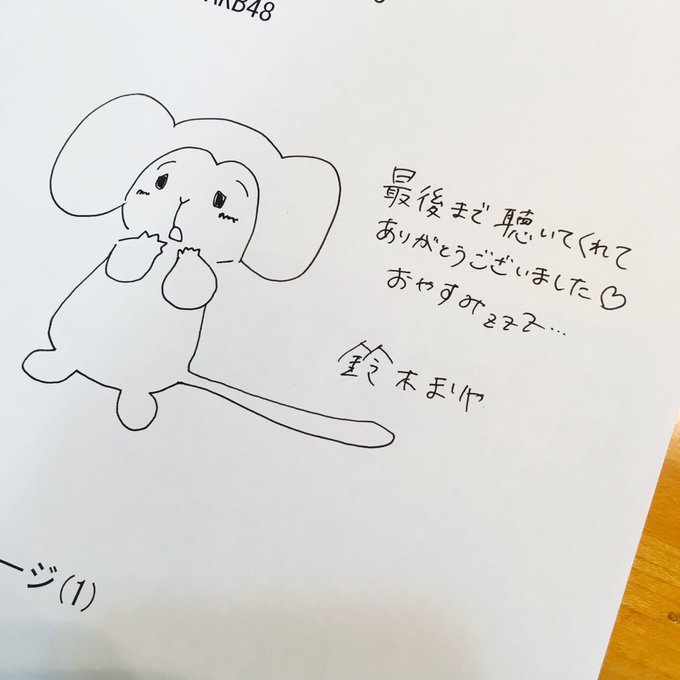 AKB48
最後まで聴いてくれて
ありがとうございました♡
おやすみzzz…
鈴木まりや
ージ(1)